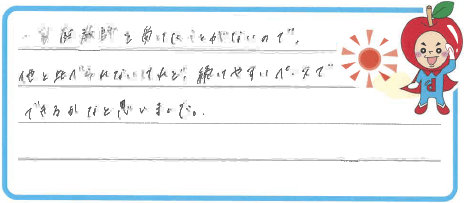 家庭教師を受けたことがないので、
他と比べられないけれど、続けやすいペースで
できるかなと思いました。